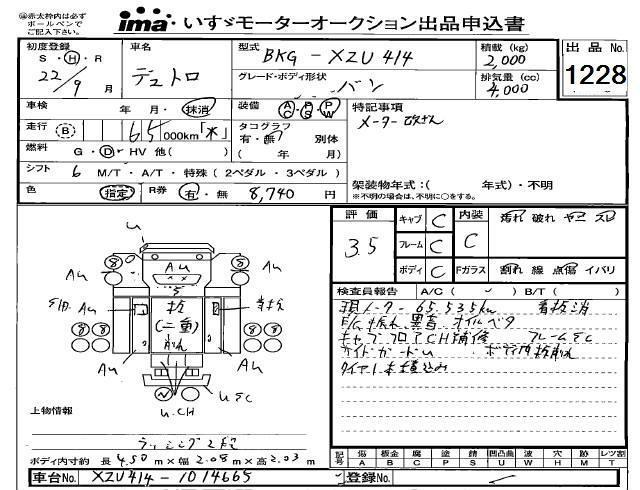 ㊟赤太枠内は必ず
ボールペンで
ご記入下さい。
ima いすゞモーターオークション出品申込書
初度登録 車名 型式 BKG-XZU414 積載 (kg) 2,000 出品 No. 1228
S・H・R デュトロ グレード・ボディ形状 排気量 (cc)
22/9 月 バン 4,000
車検 年 月・抹消 装備 AC・PS・PW 特記事項
走行 B 65 000km「木」 タコグラフ メーター
有・無 別体
燃料 G・D・HV 他( ) ( 年 月)
シフト 6 M/T・A/T・特殊 (2ペダル・3ペダル) 架装物年式:( 年式)・不明
色 指定 R券 有・無 8,740 円 ※不明の場合は、不明に○をする。
評価 3.5 キャブ C 内装 C 汚れ 破れ ヤニ スレ
フレーム C
ボディ C Fガラス 割れ 線 点傷 イバリ
検査員報告 A/C ( ) B/T ( )
現メーター 65,535km 看板消
キャブフロアCH補修
サイドガードU ボディ内抜削れ
タイヤ1本積込み
U
8 8
AU AU AU
(二重)
削れ
8 8 8 8
AU AU
U.CH
上物情報
ラッシング2段
ボディ内寸約 長 4.50 m×幅 2.08 m×高 2.03 m
記号 傷 A 板金 B 腐 C 塗 P 錆 S 凹凸曲 U 波 W 穴 H 跡 M レツ割 T
車台No. XZU414-1014665 登録No.